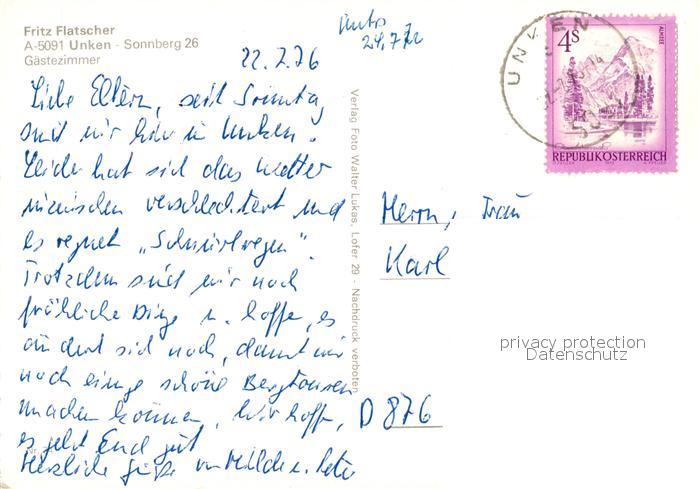 Fritz Flatscher
A-5091 Unken - Sonnberg 26
Gästezimmer
22.7.76
Liebe Eltern, seit Sonntag
sind wir hier in Unken.
Leider hat sich das Wetter
inzwischen verschlechtert und
es regnet „Schnürlregen“.
Trotzdem sind wir noch
fröhliche Dinge u. hoffen, es
ändert sich noch, damit wir
noch einige schöne Bergtouren
machen können. Wir hoffen,
es geht Euch gut
Herzliche Grüße von
Verlag Foto Walter Lukas, Lofer 29 - Nachdruck verboten
UNKEN
4 S
ALMSEE
REPUBLIK ÖSTERREICH
Herrn, Frau
Karl
privacy protection
Datenschutz
D 876